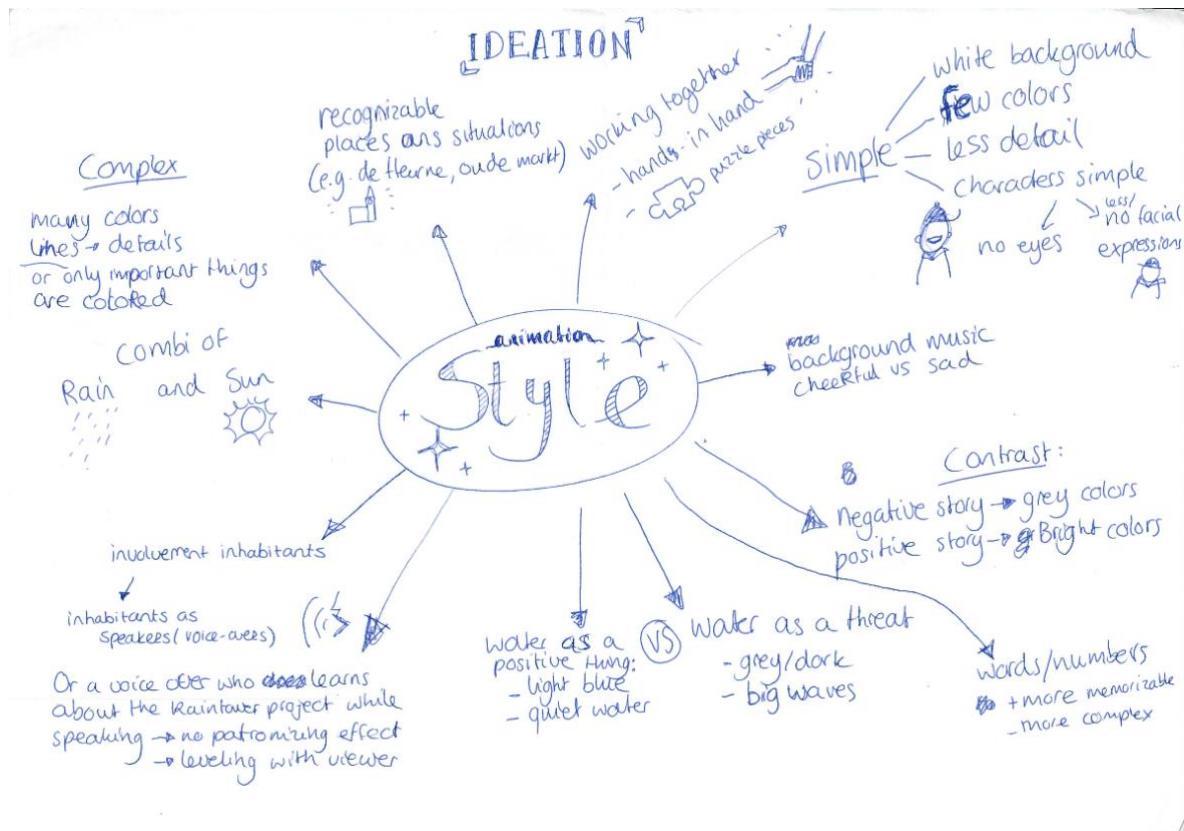 IDEATION
Complex
many colors
lines → details
or only important things
are colored
recognizable
places ans situations
(e.g. de Heurne, oude markt)
working together
- hands-in hand
- puzzle pieces
Simple
white background
few colors
less detail
characters simple
no eyes
less/
no facial
expressions
animation
Style
background music
cheerful vs sad
Combi of
Rain and Sun
Contrast:
negative story → grey colors
positive story → Bright colors
involvement inhabitants
inhabitants as
speakers (voice-overs)
Or a voice over who learns
about the Raintower project while
speaking → no patronizing effect
→ leveling with viewer
water as a
positive thing:
- light blue
- quiet water
VS
water as a threat
- grey/dark
- big waves
words/numbers
+ more memorizable
- more complex